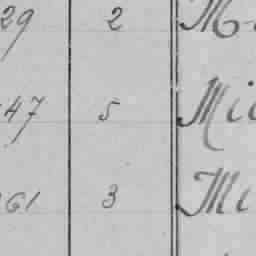 29 2 M
47 5 Mic
261 3 Mi